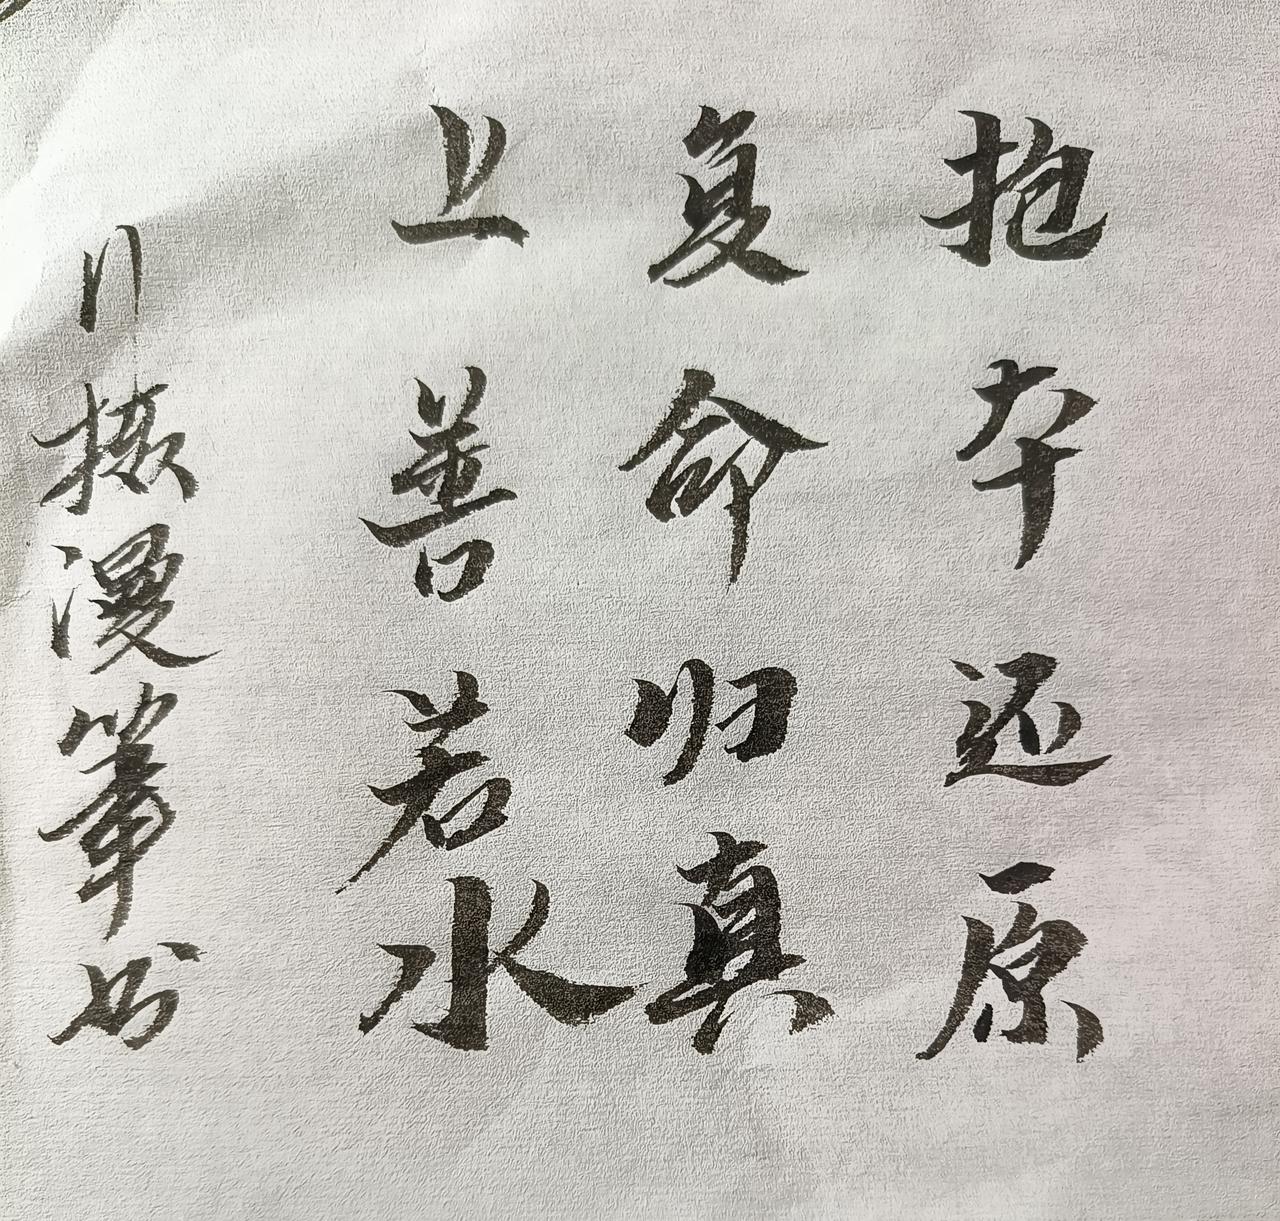 抱本还原
复命归真
上善若水
漫筆书